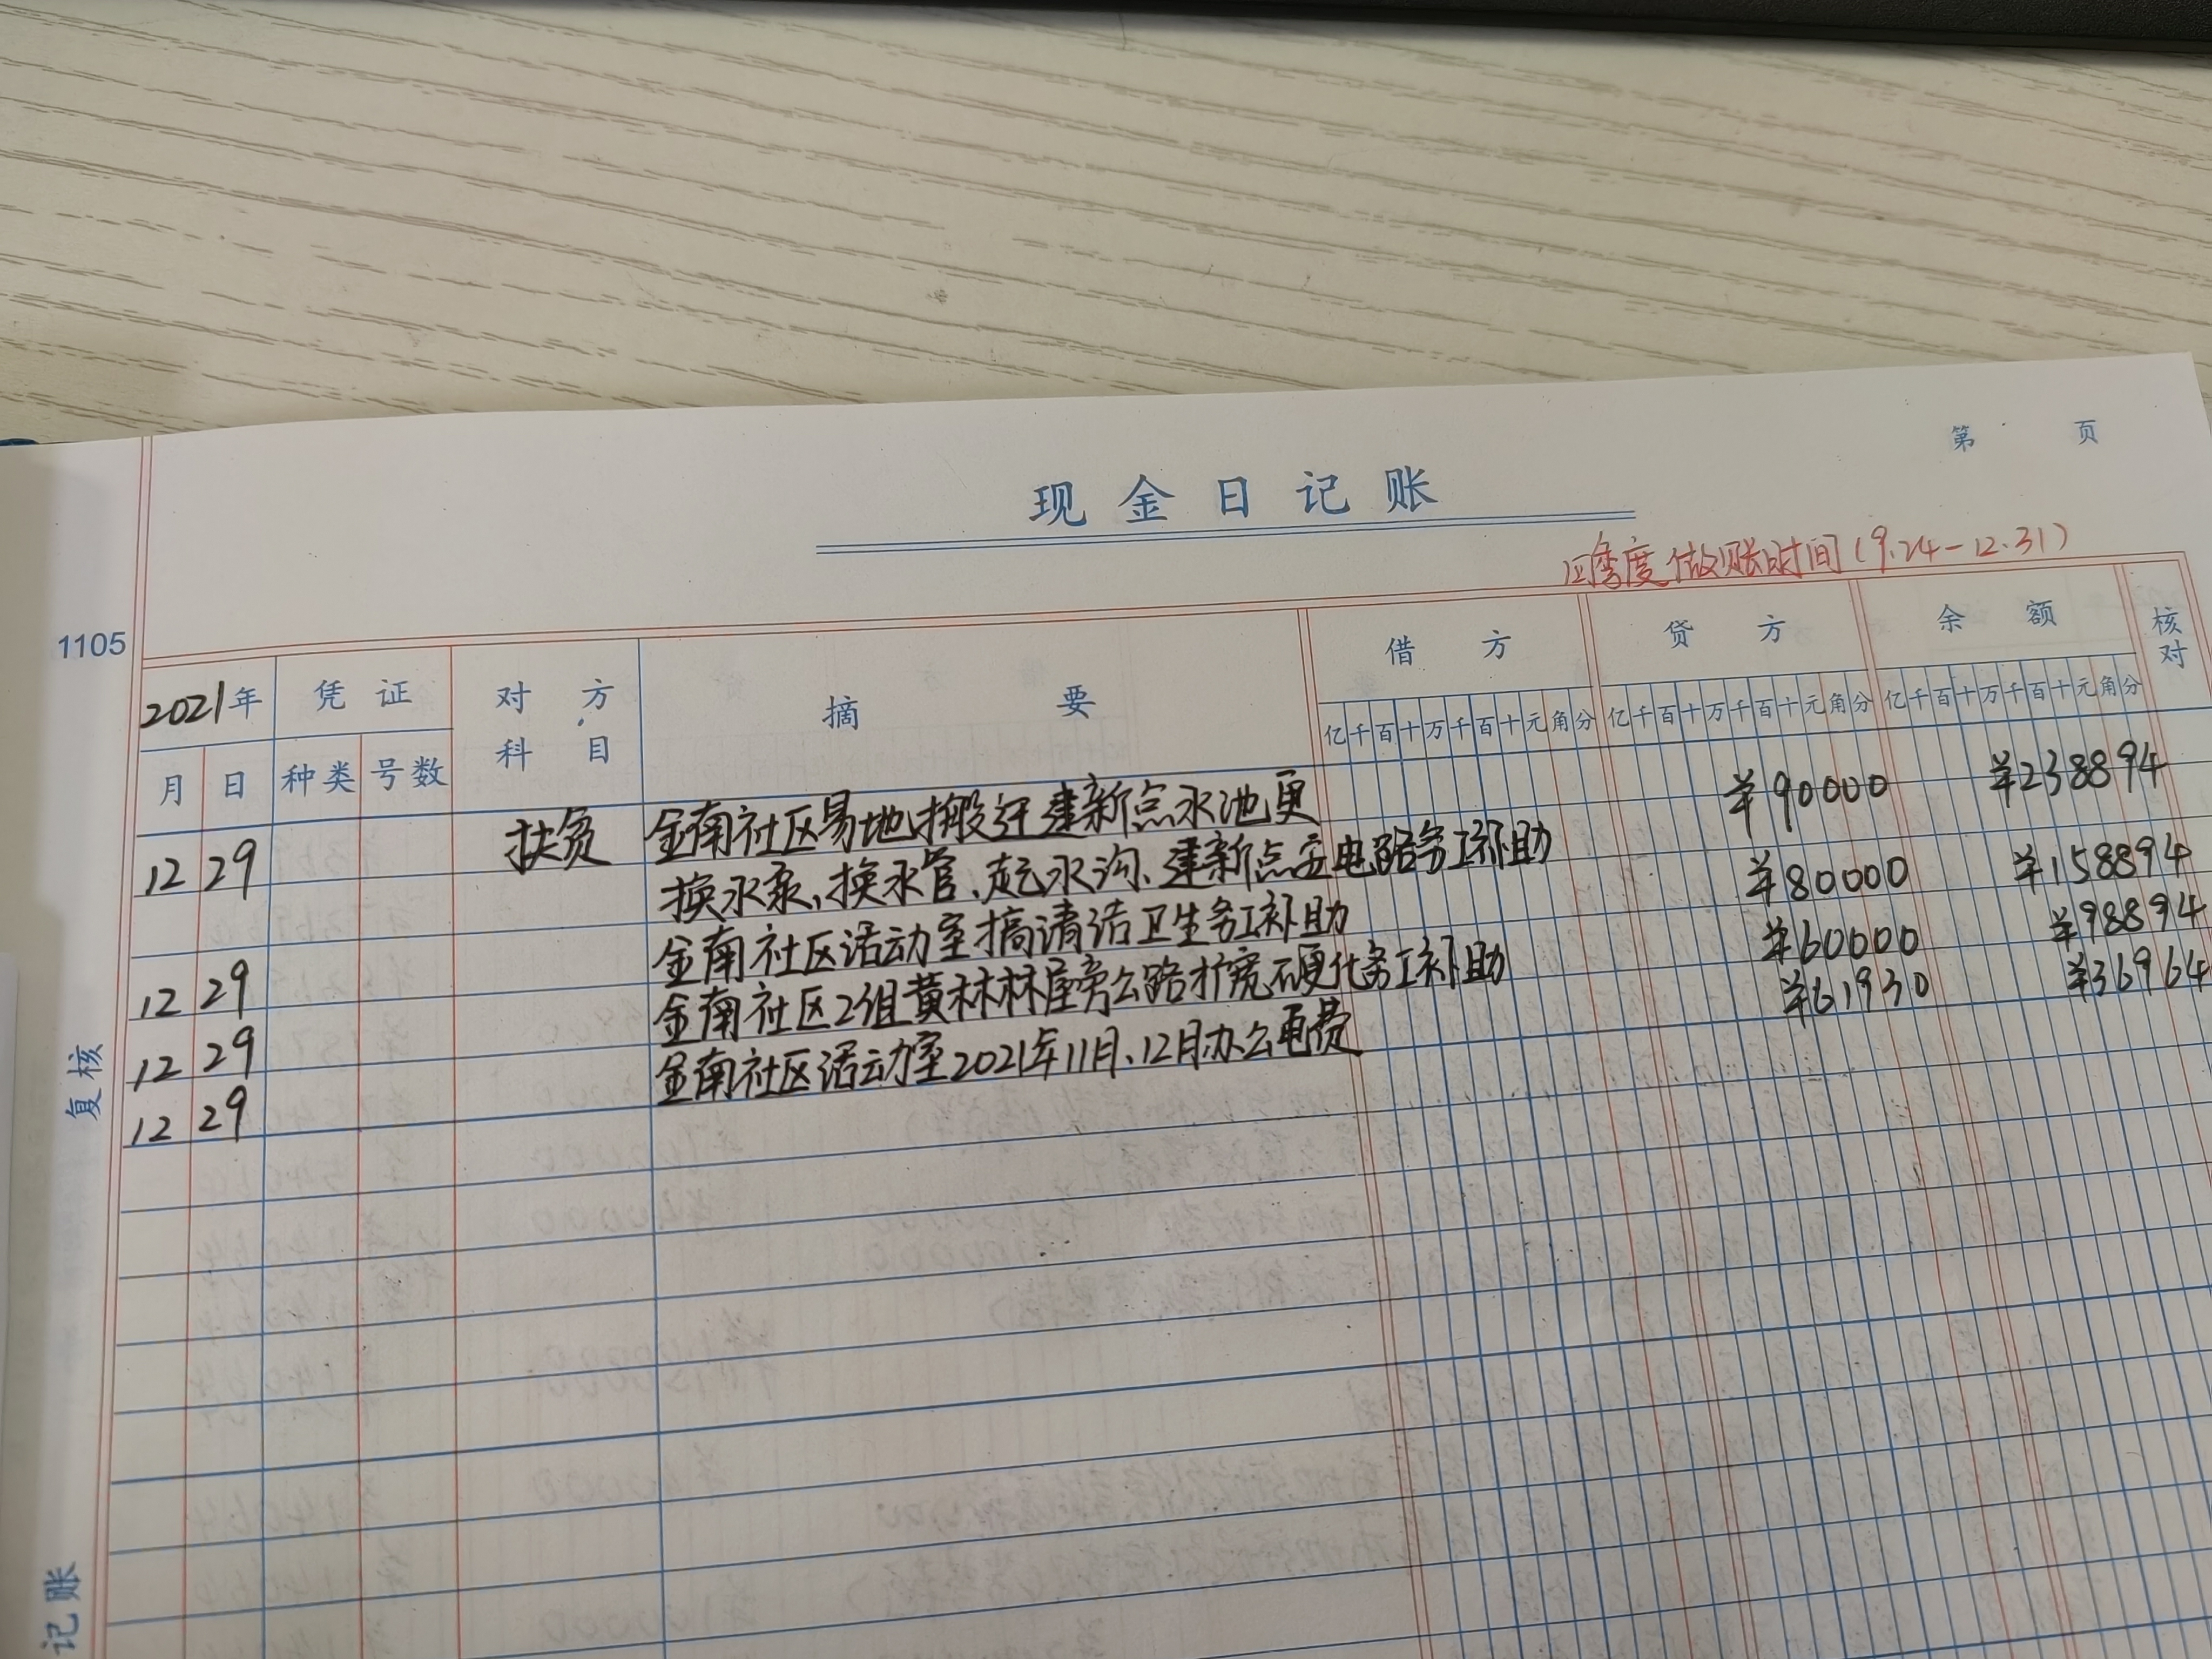 第 页
现金日记账
四季度做账时间(9.24-12.31)
1105
2021年 凭证 对方 摘要 借方 贷方 余额 核对
科目
亿千百十万千百十元角分 亿千百十万千百十元角分 亿千百十万千百十元角分
月 日 种类 号数
12 29 扶贫 金南社区易地搬迁建新点水池更 ¥90000 ¥238894
换水泵、换水管、起水沟、建新点安电路务工补助
12 29 金南社区活动室搞清洁卫生务工补助 ¥80000 ¥158894
12 29 金南社区2组黄林林屋旁公路扩宽硬化务工补助 ¥60000 ¥98894
12 29 金南社区活动室2021年11月、12月办公电费 ¥61930 ¥36964
复核
记账